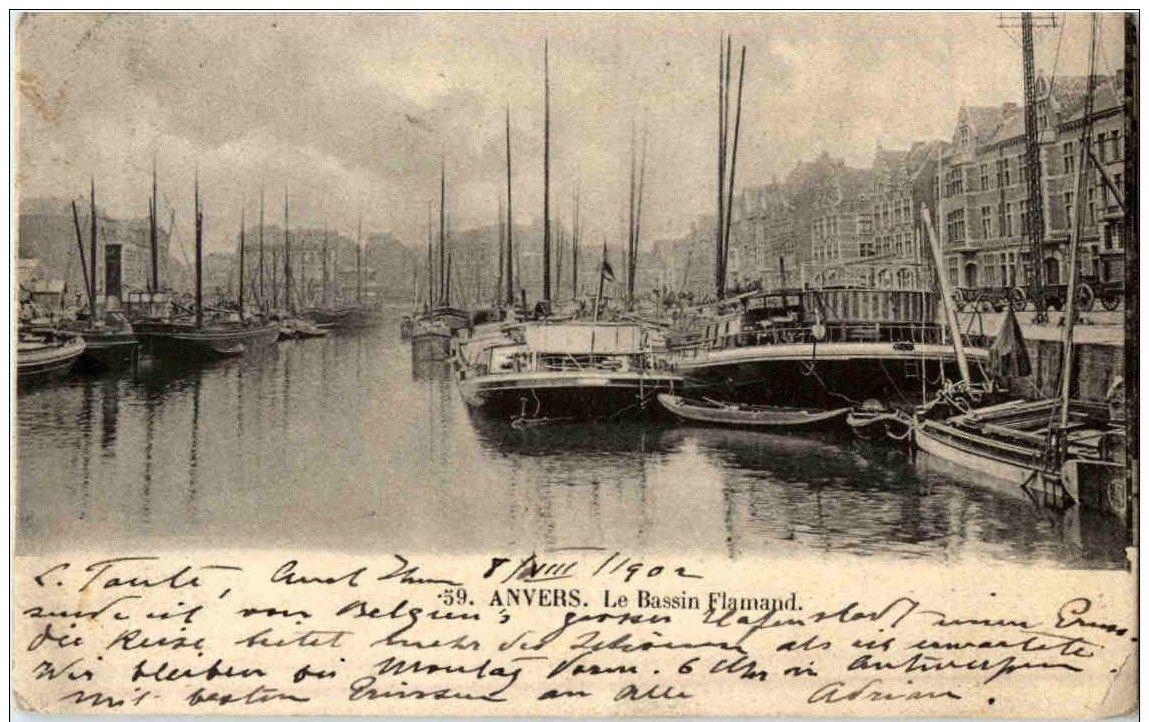 L. Tante, Auch Ihnen 8/VIII/1902
59. ANVERS. Le Bassin Flamand.
sende ich von Belgien's grosser Hafenstadt einen Gruss.
Die Reise bietet mehr des Schönen als ich erwartete.
Wir bleiben bis Montag Vorm. 6 Uhr in Antwerpen
Mit besten Grüssen an Alle Adrian.